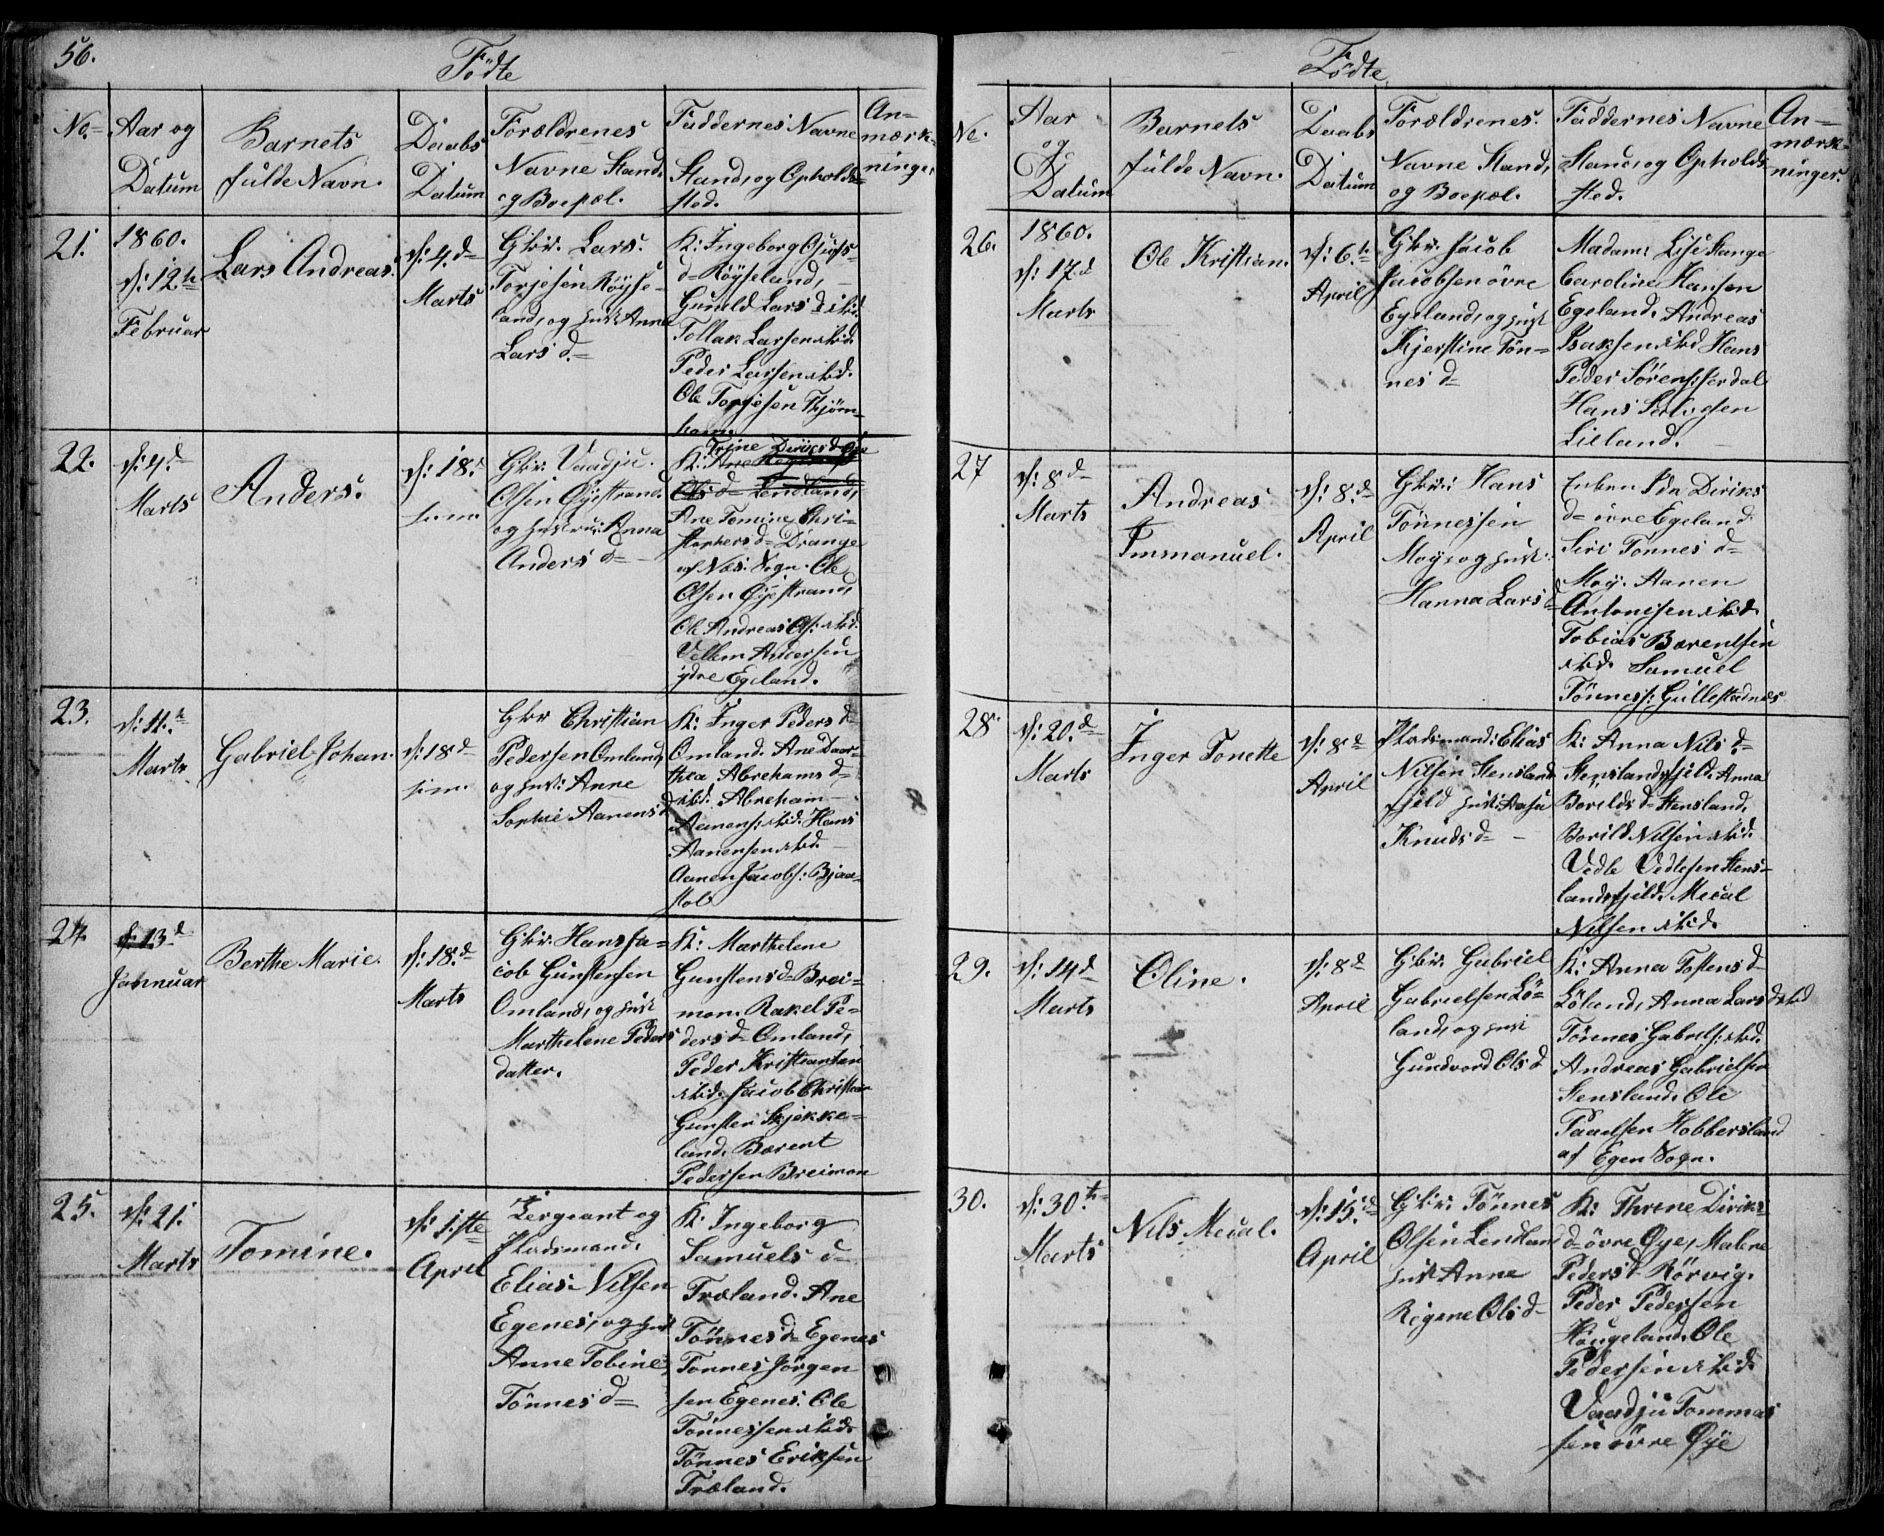 56.
Födte
No.
Aar og
Datum
Barnets
fulde Navn.
Daabs
Datum
Forældrenes
Navne Stand,
og Boepæl.
Faddernes Navne
Stand, og Opholds=
sted.
An=
mærk=
ninger.
21.
1860.
d: 12te
Februar
Lars Andreas.
d: 4.d
Marts
Gbr. Lars
Torjesen Röyse=
land, og Anne
Lars d.
K: Ingeborg
d= Röyseland,
Gunild Lars d ibid.
Tollak Larsen ibid.
Peder Larsen ibid.
Ole Torjesen
22.
d: 4.d
Marts
Anders.
d: 18.d
Gbr. Vaadju
Olsen Öyestrand
og Anna
Anders d=
Trine Diriks d
K: Ane
Ols d= Lendland,
Ane Tomine Chri=
stophers d= Drange
af Næs Sogn. Ole
Olsen Öyestrand,
Ole Andreas Ols: ibid.
Villem Andersen
ydre Egeland.
23.
d: 11.te
Marts
Gabriel Johan.
d: 18d
Gbr Christian
Pedersen Omland,
og Anne
Sophie Aanens d
K: Inger Peders d=
Omland. Ane Daar=
thea Abrehams d=
ibid. Abreham
Aanens: ibid. Hans
Aanensen ibid.
Aanen Jacobs: Bjaa=
stol.
24.
d: 13.d
Januar
Berthe Marie.
d: 18.d
Marts
Gbr. Hans Ja=
cob Gunstensen
Omland, og
Marthelene Peders
datter.
K: Marthelene
Gunstens d= Brei=
mon. Rakel Pe=
ders d= Omland,
Peder Kristiansen
ibid. Jacob Christian
Gunsten Skjekke=
land. Barent
Pedersen Breimon
25.
d: 21.
Marts
Tomine.
d: 1.ste
April
Sergeant og
Pladsmand,
Elias Nilsen
Egenes, og
Anne Tobine
Tönnes d=
K. Ingeborg
Samuels d=
Træland. Ane
Tönnes d= Egenes
Tonnes Jörgen
sen Egenes. Ole
Tönnessen ibid.
Tönnes Eriksen
Træland.
Födte
No.
Aar
og
Datum
Barnets
fulde Navn.
Daabs
Datum
Forældrenes
Navne Stand,
og Boepæl.
Faddernes Navne
Stand, og Opholds
sted.
An=
mærk=
ninger.
26.
1860.
d: 17.d
Marts
Ole Kristian.
d: 6.te
April
Gbr. Jacob
Jacobsen övre
Egeland, og
Kjerstine Tön=
nes d=
Madam: Lise Stange
Caroline Hansen
Egeland. Andreas
Isaksen ibid Hans
Peder Sörens:
Hans
Lieland.
27
d: 8d
Marts
Andreas
Immanuel.
d: 8.d
April
Gbr: Hans
Tönnessen
Moy, og
Hanna Lars d
Enken Ida Diriks
d= övre Egeland
Siri Tonnes d=
Moy. Aanen
Antonisen ibid.
Tobias Barentsen
ibid. Samuel
Tönness: Gullestadnes
28.
d: 20.d
Marts
Inger Tonette
d: 8d
April
Pladsmand: Elias
Nilsen Stensland
fjeld Aasa
Knuds d=
K: Anna Nils d=
Stenslandsfjeld. Anna
Borilds d= Stensland.
Borild Nilsen ibid.
Vedle Vedlesen Stens=
landsfjeld. Mecal
Nilsen ibid.
29.
d: 14d
Marts
Oline.
d: 8d
April
Gbr. Gabriel
Gabrielsen Lö=
land, og
Gundvord Ols d
K: Anna Tostens d=
Löland, Anna Lars d ibid
Tönnes Gabriels: ibid.
Andreas Gabrielsen
Stensland. Ole
Paaelsen Hobbersland
af Egen Sogn.
30.
d: 30.te
Marts
Nils Mecal.
d: 15.d
April
Gbr. Tönnes
Olsen Lendland
Anne
Regine Ols d=
K: Threne Diriks=
d= övre Öye, Malene
Peders d= Rörvig.
Peder Pedersen
Hougeland. Ole
Pedersen ibid.
Vaadju Tommas
sen övre Öye